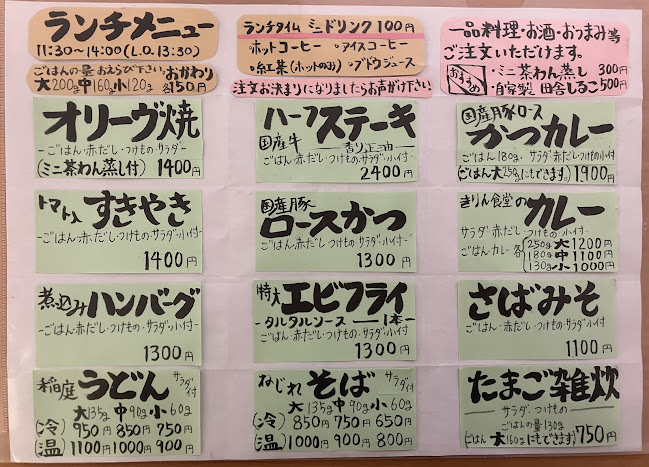 ランチメニュー
11:30~14:00(L.O.13:30)
ごはんの量 おえらび下さい
大200g 中160g 小120g
おかわり
各150円
ランチタイム ミニドリンク 100円
・ホットコーヒー ・アイスコーヒー
・紅茶(ホットのみ) ・ブドウジュース
注文お決まりになりましたらお声がけ下さい
一品料理・お酒・おつまみ等
ご注文いただけます。
おすすめ
・ミニ茶わん蒸し 300円
・自家製 田舎しるこ 500円
オリーヴ焼
-ごはん・赤だし・つけもの・サラダ-
(ミニ茶わん蒸し付) 1400円
ハーフステーキ
国産牛
ごはん・赤だし・つけもの・サラダ・小付-
2400円
国産豚ロース
かつカレー
ごはん180g・サラダ・赤だし・つけもの・小付
(ごはん大250gにもできます) 1900円
トマト入 すきやき
-ごはん・赤だし・つけもの・サラダ・小付-
1400円
国産豚
ロースかつ
ごはん・赤だし・つけもの・サラダ・小付
1300円
きりん食堂の
カレー
サラダ・赤だし・つけもの・小付
ごはん・カレー各
250g 大 1200円
180g 中 1100円
130g 小 1000円
煮込みハンバーグ
-ごはん・赤だし・つけもの・サラダ・小付-
1300円
特大 エビフライ
-タルタルソース 1本-
ごはん・赤だし・つけもの・サラダ・小付
1300円
さばみそ
-ごはん・赤だし・つけもの・サラダ・小付
1100円
稲庭 うどん サラダ付
大135g 中90g 小60g
(冷) 950円 850円 750円
(温) 1100円 1000円 900円
ねじれ そば サラダ付
大135g 中90g 小60g
(冷) 850円 750円 650円
(温) 1000円 900円 800円
たまご雑炊
サラダ・つけもの
ごはんの量130g
(ごはん大160gにもできます) 750円